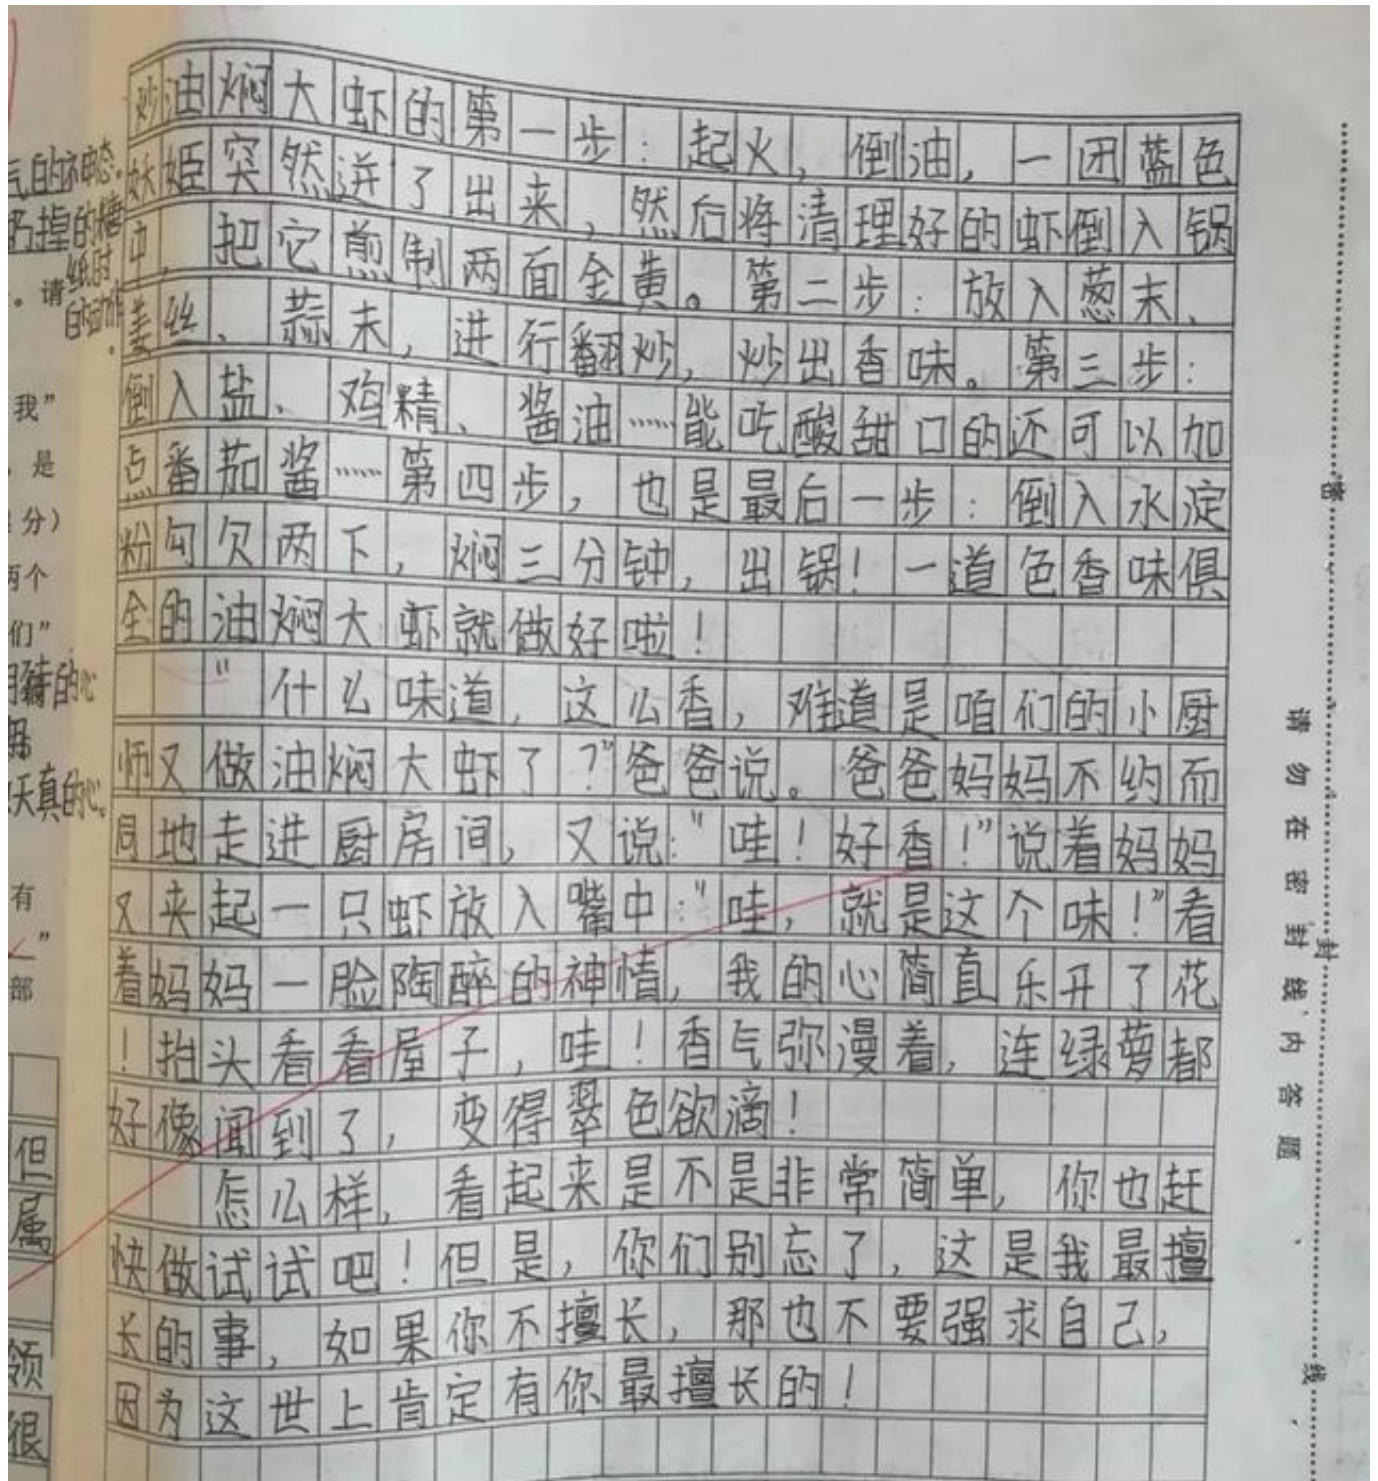 炒油焖大虾的第一步：起火，倒油，一团蓝色
妖姬突然迸了出来，然后将清理好的虾倒入锅
中，把它煎制两面金黄。第二步：放入葱末、
姜丝、蒜末，进行翻炒，炒出香味。第三步：
倒入盐、鸡精、酱油……能吃酸甜口的还可以加
点番茄酱……第四步，也是最后一步：倒入水淀
粉勾欠两下，焖三分钟，出锅！一道色香味俱
全的油焖大虾就做好啦！
“什么味道，这么香，难道是咱们的小厨
师又做油焖大虾了？”爸爸说。爸爸妈妈不约而
同地走进厨房间，又说：“哇！好香！”说着妈妈
又夹起一只虾放入嘴中：“哇，就是这个味！”看
着妈妈一脸陶醉的神情，我的心简直乐开了花
！抬头看看屋子，哇！香气弥漫着，连绿萝都
好像闻到了，变得翠色欲滴！
怎么样，看起来是不是非常简单，你也赶
快做试试吧！但是，你们别忘了，这是我最擅
长的事，如果你不擅长，那也不要强求自己，
因为这世上肯定有你最擅长的！
扔掉的糖
纸时
。请
的动作
。
我”
，是
分）
两个
们”
的心
天真的心。
有
”
部
但
属
领
很
密
封
线
请勿在密封线内答题